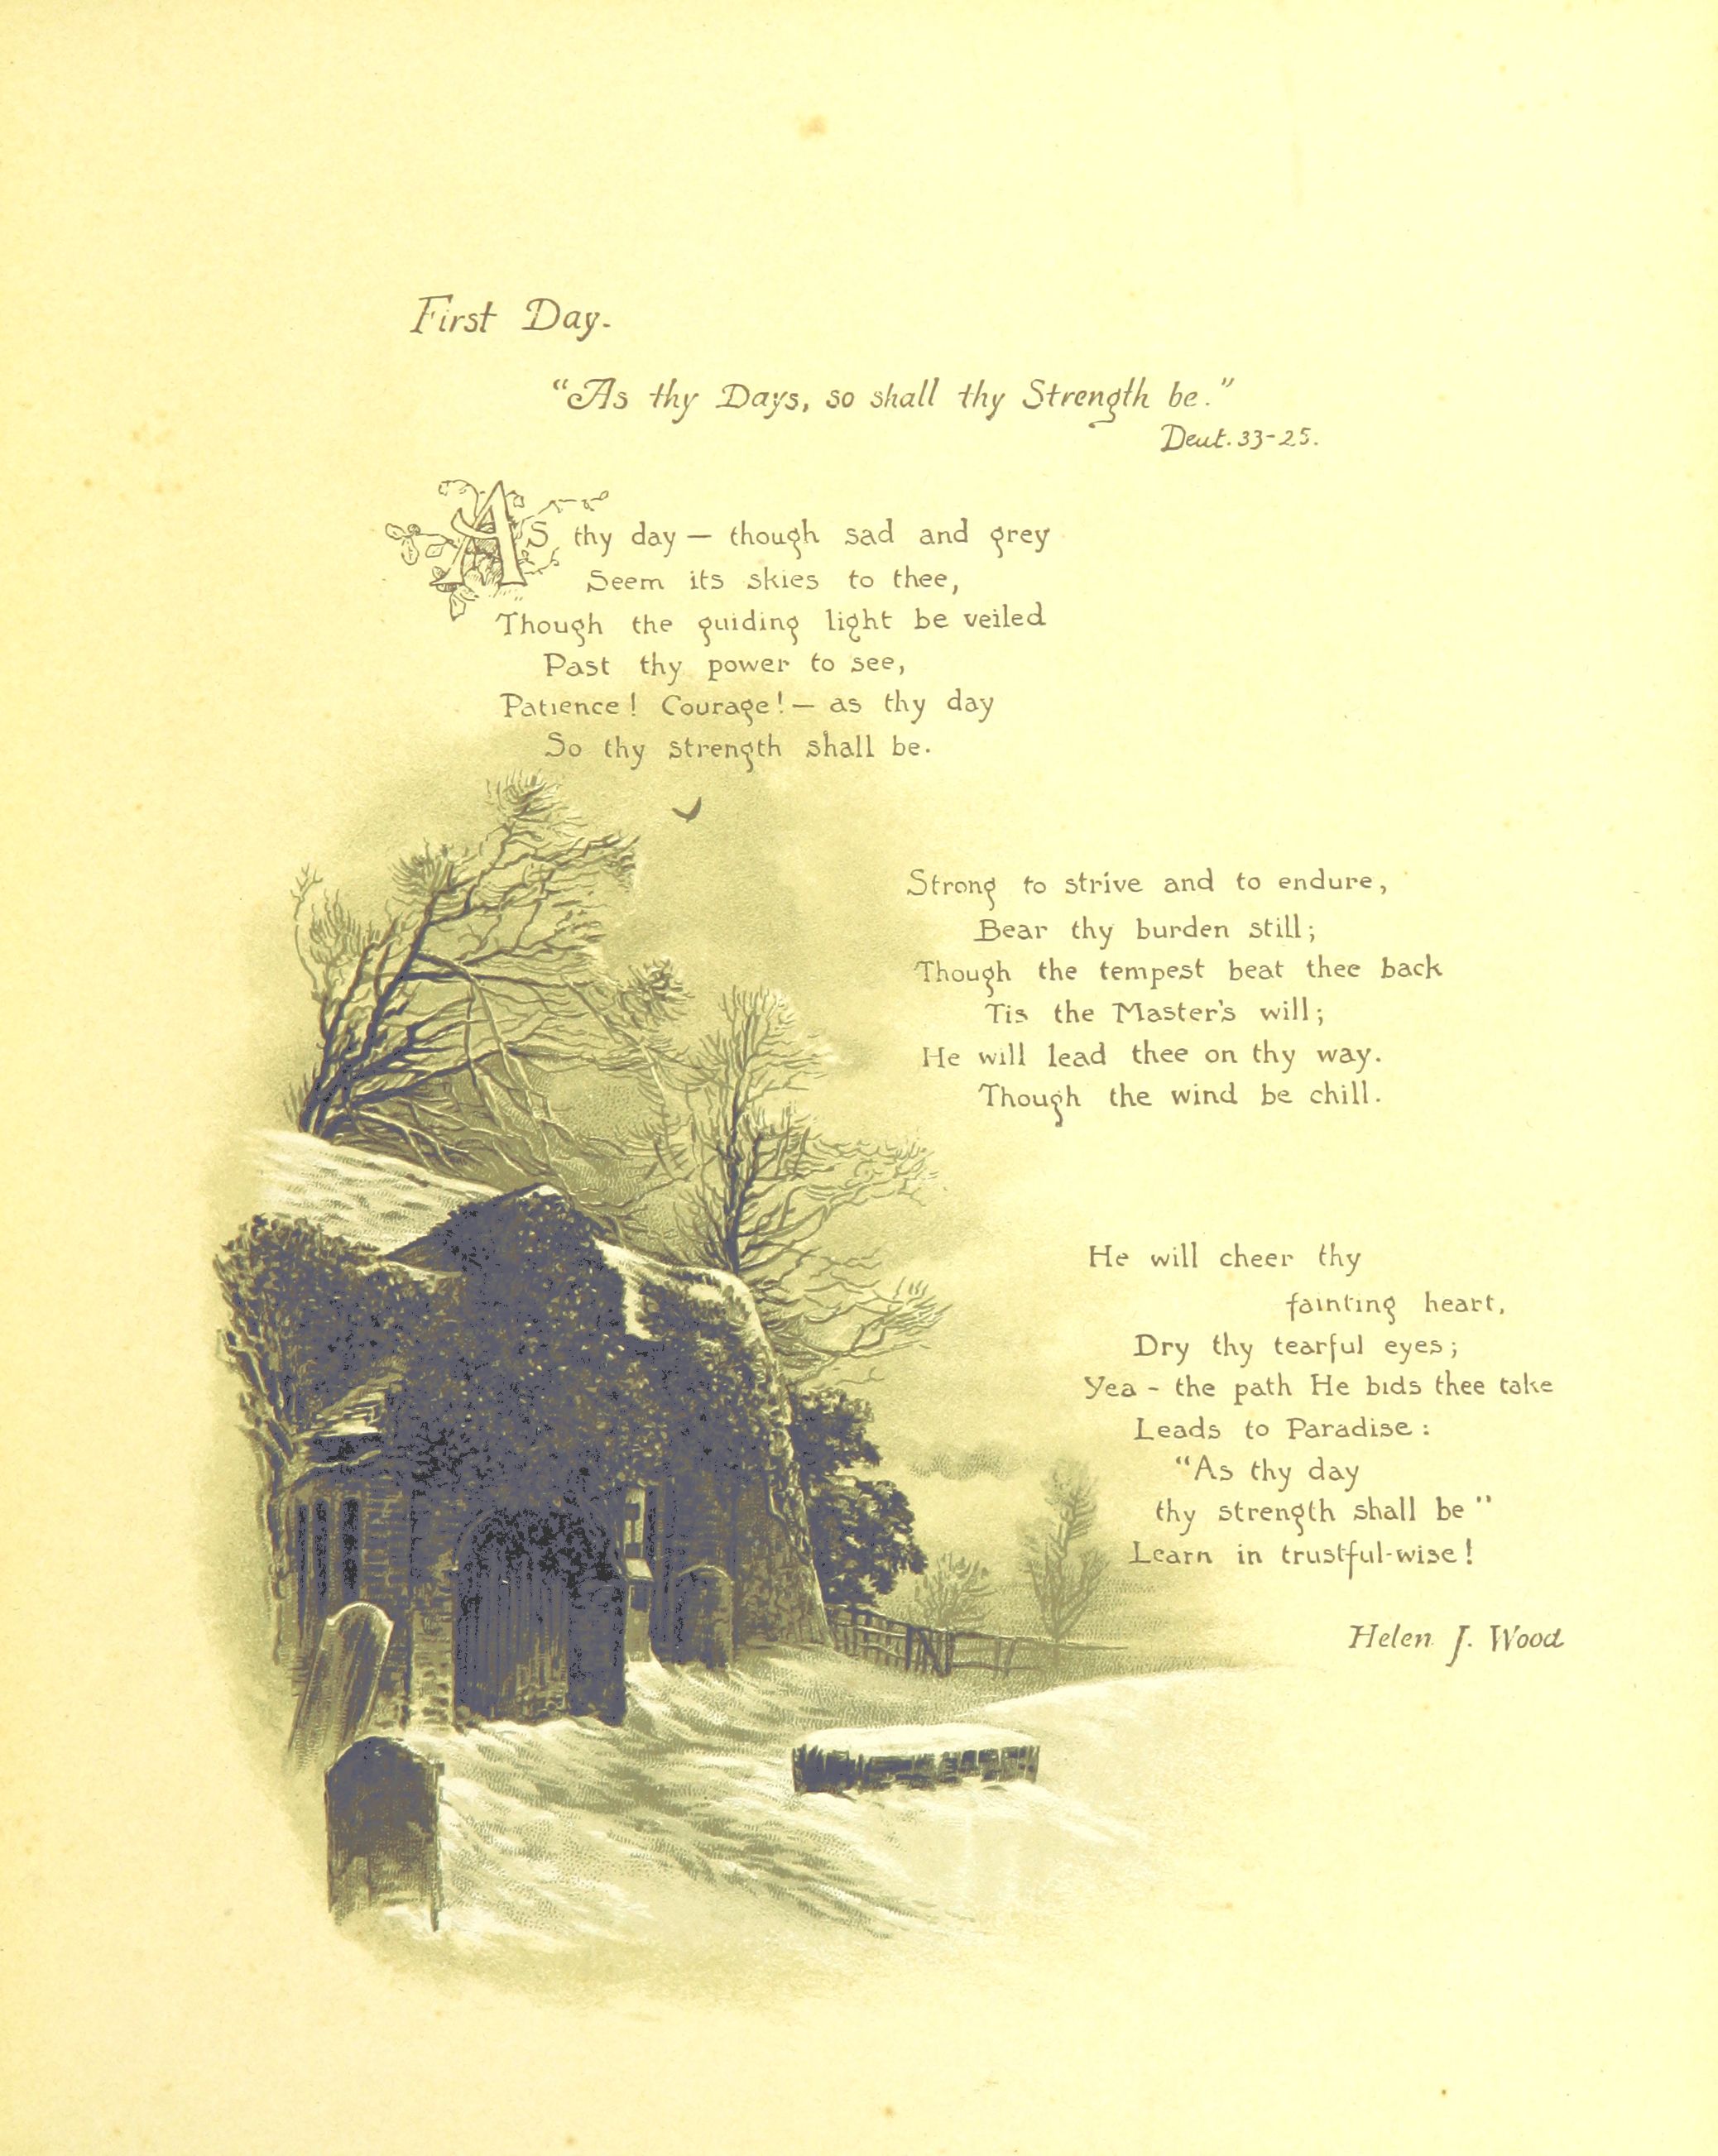 First Day.
"As thy Days, so shall thy Strength be."
Deut. 33-25.
As thy day — though sad and grey
Seem its skies to thee,
Though the guiding light be veiled
Past thy power to see,
Patience! Courage! — as thy day
So thy strength shall be.
Strong to strive and to endure,
Bear thy burden still;
Though the tempest beat thee back
Tis the Master's will;
He will lead thee on thy way.
Though the wind be chill.
He will cheer thy
fainting heart,
Dry thy tearful eyes;
Yea - the path He bids thee take
Leads to Paradise:
"As thy day
thy strength shall be"
Learn in trustful-wise!
Helen J. Wood